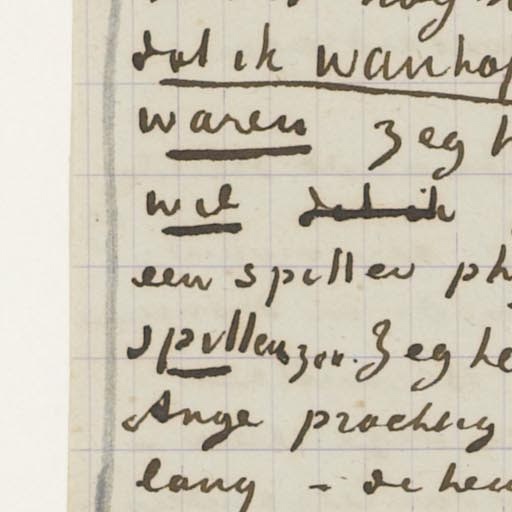 dat ik wanhop
waren zeg h
wil dat ik
een spiller ph
spullen zou. Zeg he
Ange prachtig
lang - de heu